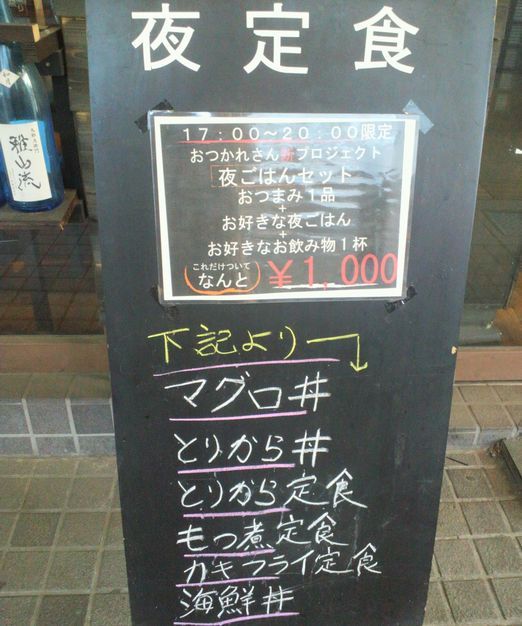 夜定食
17:00〜20:00限定
おつかれさんプロジェクト
「夜ごはんセット
おつまみ1品
+
お好きな夜ごはん
+
お好きなお飲み物1杯
これだけついて
なんと
¥1,000
下記より
マグロ丼
とりから丼
とりから定食
もつ煮定食
カキフライ定食
海鮮丼
雅山流